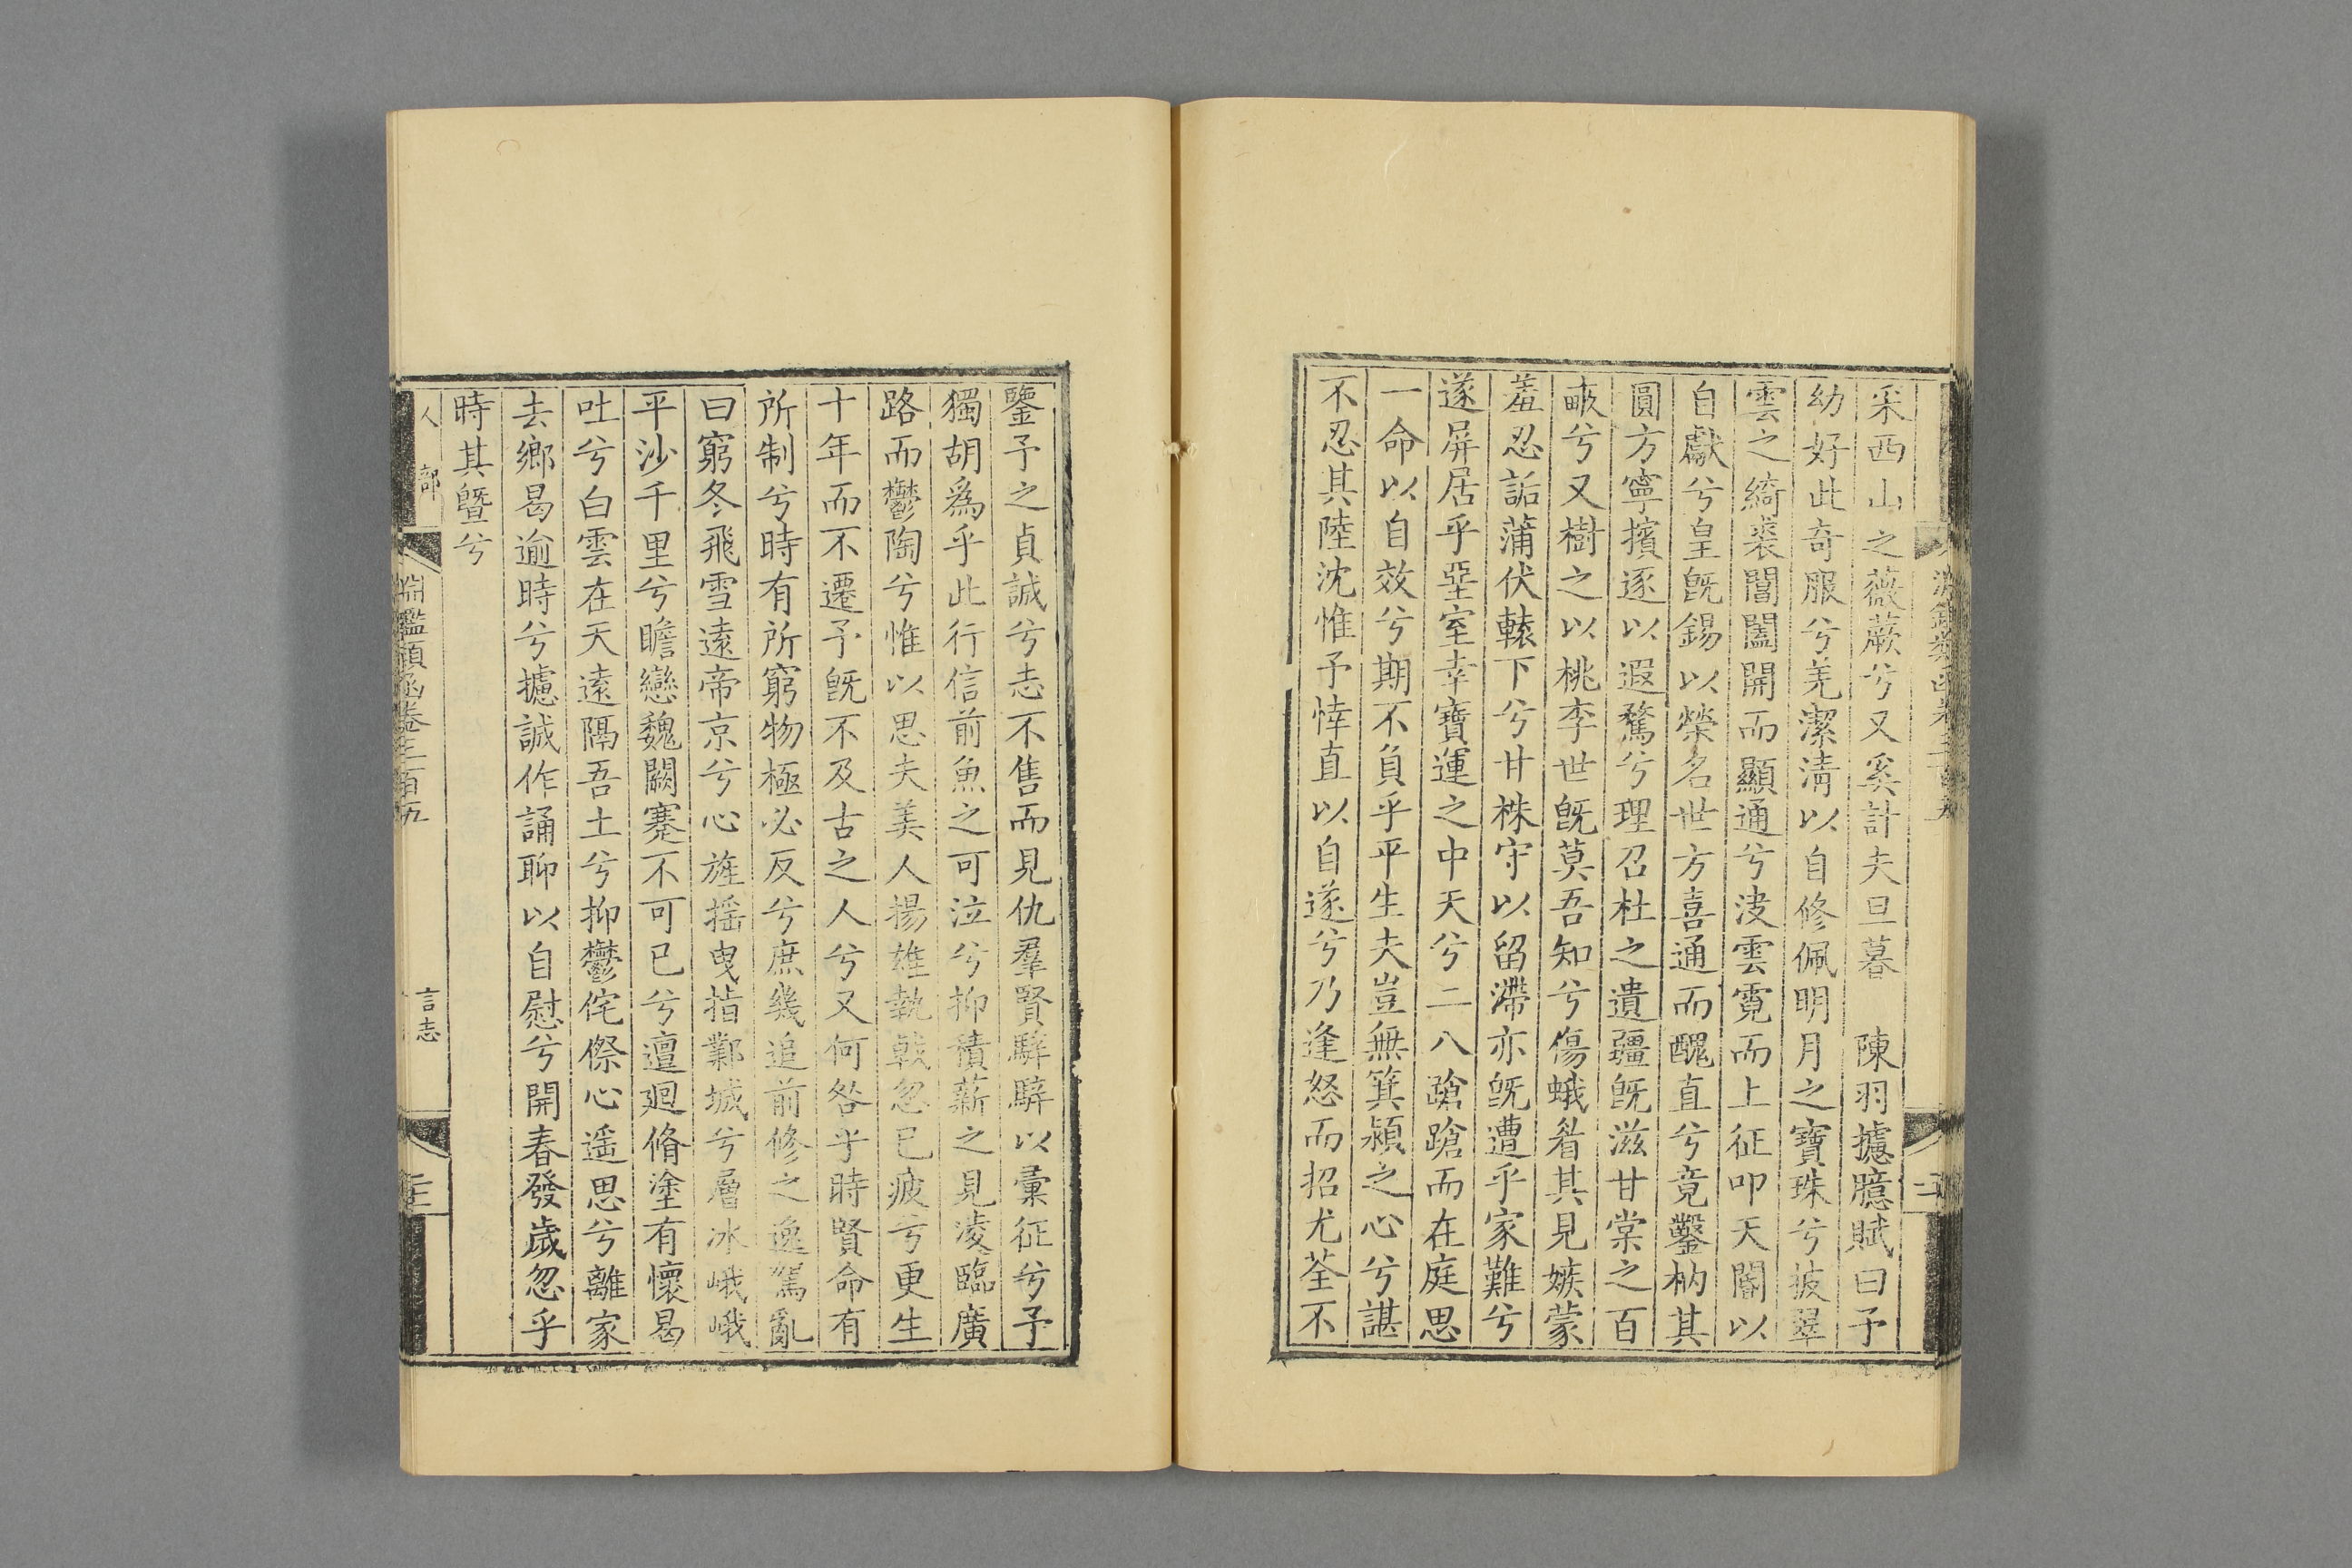 采西山之薇蕨兮又奚計夫旦暮　陳羽攄臆賦曰予
幼好此奇服兮羌潔清以自修佩明月之寶珠兮披翠
雲之綺裘閶闔開而顯通兮淩雲霓而上征叩天閽以
自獻兮皇旣錫以榮名世方喜通而醜直兮竟鑿枘其
圓方寧擯逐以遐騖兮理召杜之遺疆旣滋甘棠之百
畮兮又樹之以桃李世旣莫吾知兮傷蛾眉其見嫉蒙
羞忍詬蒲伏轅下兮甘株守以留滯亦旣遭乎家難兮
遂屏居乎堊室幸寶運之中天兮二八蹌蹌而在庭思
一命以自效兮期不負乎平生夫豈無箕潁之心兮諶
不忍其陸沈惟予悻直以自遂兮乃逢怒而招尤荃不
鑒予之貞誠兮志不售而見仇羣賢騂騂以彙征兮予
獨胡爲乎此行信前魚之可泣兮抑積薪之見淩臨廣
路而鬱陶兮惟以思夫美人揚雄執戟忽已疲兮更生
十年而不遷予旣不及古之人兮又何咎乎時賢命有
所制兮時有所窮物極必反兮庶幾追前修之逸駕亂
曰窮冬飛雪遠帝京兮心旌搖曳指鄴城兮層冰峨峨
平沙千里兮瞻戀魏闕蹇不可已兮邅迴脩塗有懷曷
吐兮白雲在天遠隔吾土兮抑鬱侘傺心遥思兮離家
去鄉曷逾時兮攄誠作誦聊以自慰兮開春發歲忽乎
時其曁兮
人部
淵鑑類函卷三百五
言志